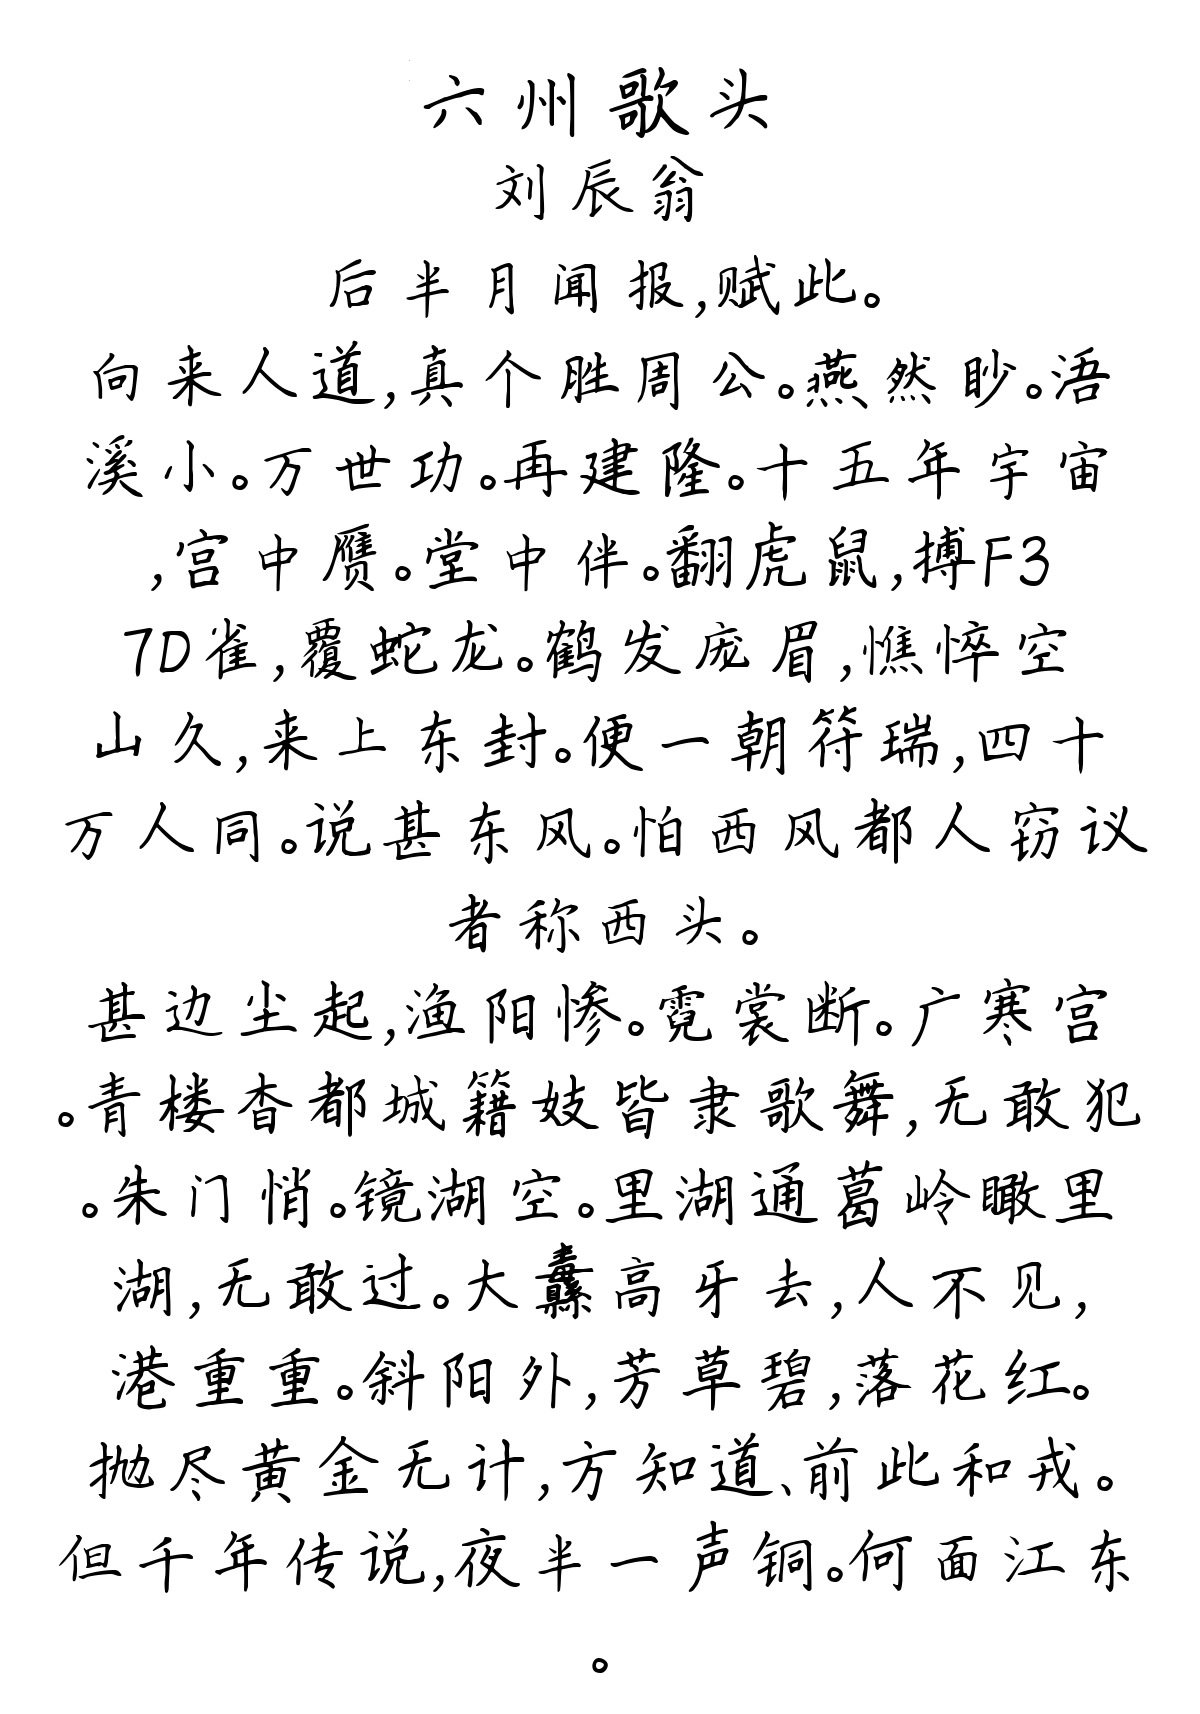 六州歌头
刘辰翁
后半月闻报,赋此。
向来人道,真个胜周公。燕然眇。浯
溪小。万世功。再建隆。十五年宇宙
,宫中赝。堂中伴。翻虎鼠,搏F3
7D雀,覆蛇龙。鹤发庞眉,憔悴空
山久,来上东封。便一朝符瑞,四十
万人同。说甚东风。怕西风都人窃议
者称西头。
甚边尘起,渔阳惨。霓裳断。广寒宫
。青楼杳都城籍妓皆隶歌舞,无敢犯
。朱门悄。镜湖空。里湖通葛岭瞰里
湖,无敢过。大纛高牙去,人不见,
港重重。斜阳外,芳草碧,落花红。
抛尽黄金无计,方知道、前此和戎。
但千年传说,夜半一声铜。何面江东
。